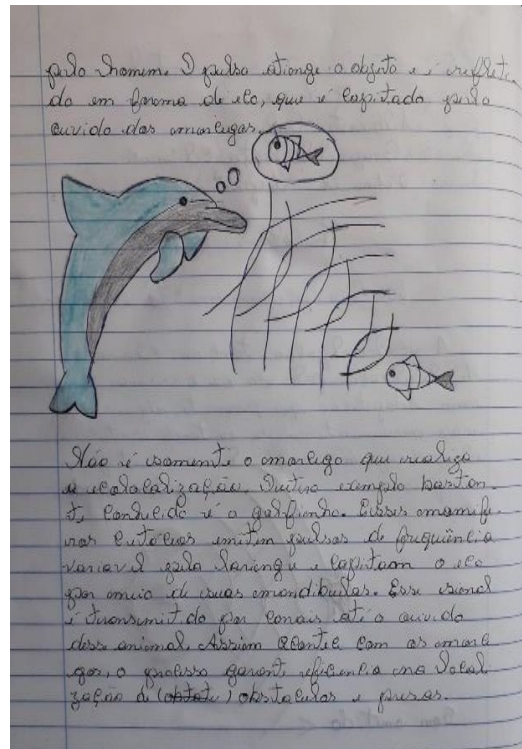 pelo homem. O pulso atinge o objeto e é refleti
do em forma de eco, que é captado pelo
ouvido dos morcegos.
Não é somente o morcego que realiza
a ecolocalização. Outro exemplo bastan
te conhecido é o golfinho. Esses mamífe
ros cetáceos emitem pulsos de frequência
variavel pela laringe e captam o eco
por meio de suas mandibulas. Esse sional
é transmitido por canais até o ouvido
desse animal. Assim como com os morce
gos, o processo garante eficiencia na local
ização de obstaculos e presas.